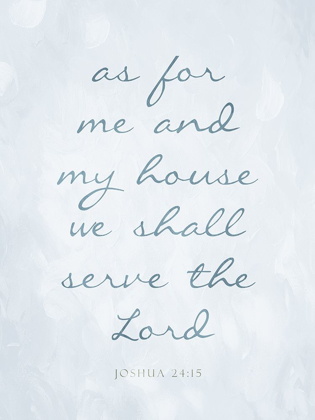 as for
me and
my house
we shall
serve the
Lord
JOSHUA 24:15